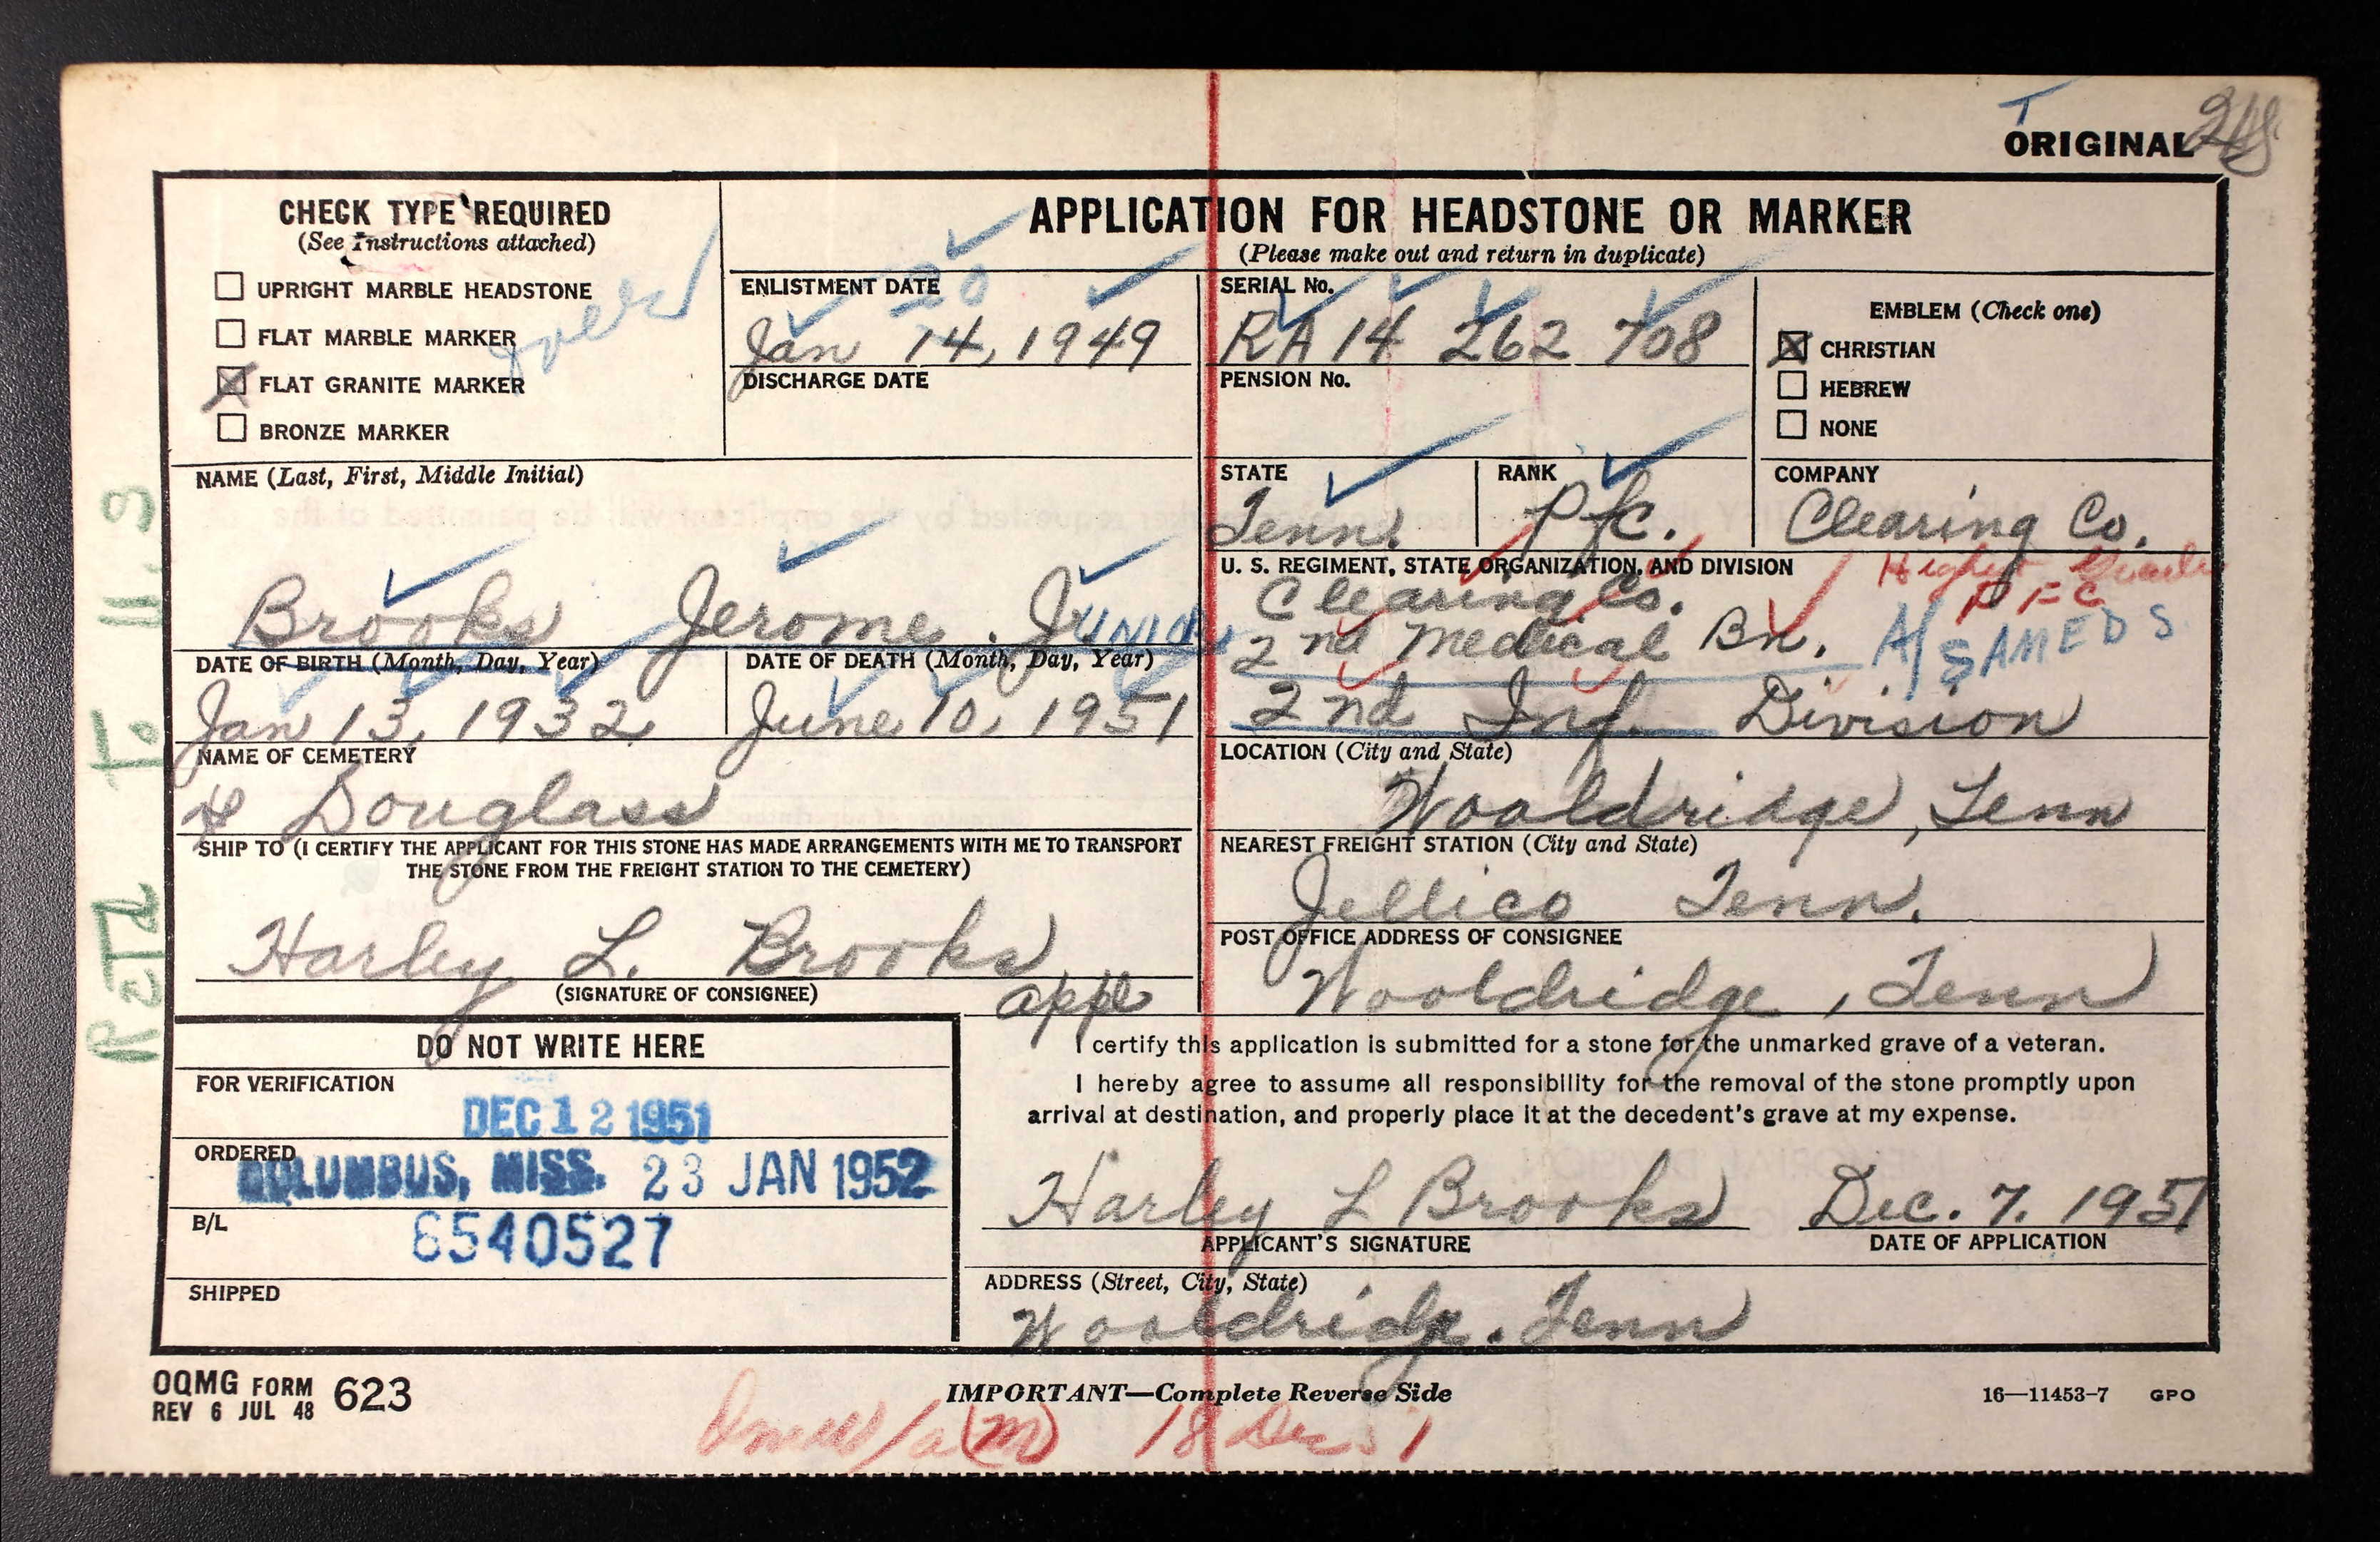 ORIGINAL
CHECK TYPE REQUIRED
(See Instructions attached)
UPRIGHT MARBLE HEADSTONE
FLAT MARBLE MARKER
FLAT GRANITE MARKER
BRONZE MARKER
APPLICATION FOR HEADSTONE OR MARKER
(Please make out and return in duplicate)
ENLISTMENT DATE
20
Jan 14, 1949
DISCHARGE DATE
SERIAL No.
RA 14 262 708
PENSION No.
EMBLEM (Check one)
CHRISTIAN
HEBREW
NONE
NAME (Last, First, Middle Initial)
Brooks Jerome. JrUNIOR
STATE
Tenn.
RANK
Pfc.
COMPANY
Clearing Co.
U. S. REGIMENT, STATE ORGANIZATION, AND DIVISION
Highest Grade
PFC
Clearing Co.
2nd Medical Bn.
A/SAMEDS
2nd Inf. Division
DATE OF BIRTH (Month, Day, Year)
Jan 13, 1932
DATE OF DEATH (Month, Day, Year)
June 10, 1951
NAME OF CEMETERY
Douglass
LOCATION (City and State)
Wooldridge, Tenn
SHIP TO (I CERTIFY THE APPLICANT FOR THIS STONE HAS MADE ARRANGEMENTS WITH ME TO TRANSPORT
THE STONE FROM THE FREIGHT STATION TO THE CEMETERY)
Harley L. Brooks
(SIGNATURE OF CONSIGNEE)
appl
NEAREST FREIGHT STATION (City and State)
Jellico Tenn.
POST OFFICE ADDRESS OF CONSIGNEE
Wooldridge, Tenn
DO NOT WRITE HERE
FOR VERIFICATION
DEC 12 1951
ORDERED
COLUMBUS, MISS. 23 JAN 1952
B/L
6540527
SHIPPED
I certify this application is submitted for a stone for the unmarked grave of a veteran.
I hereby agree to assume all responsibility for the removal of the stone promptly upon
arrival at destination, and properly place it at the decedent's grave at my expense.
Harley L Brooks
APPLICANT'S SIGNATURE
Dec. 7. 1951
DATE OF APPLICATION
ADDRESS (Street, City, State)
Wooldridge. Tenn
OQMG FORM 623
REV 6 JUL 48
IMPORTANT—Complete Reverse Side
16—11453-7 GPO
18 Dec 51
Retd To U.S